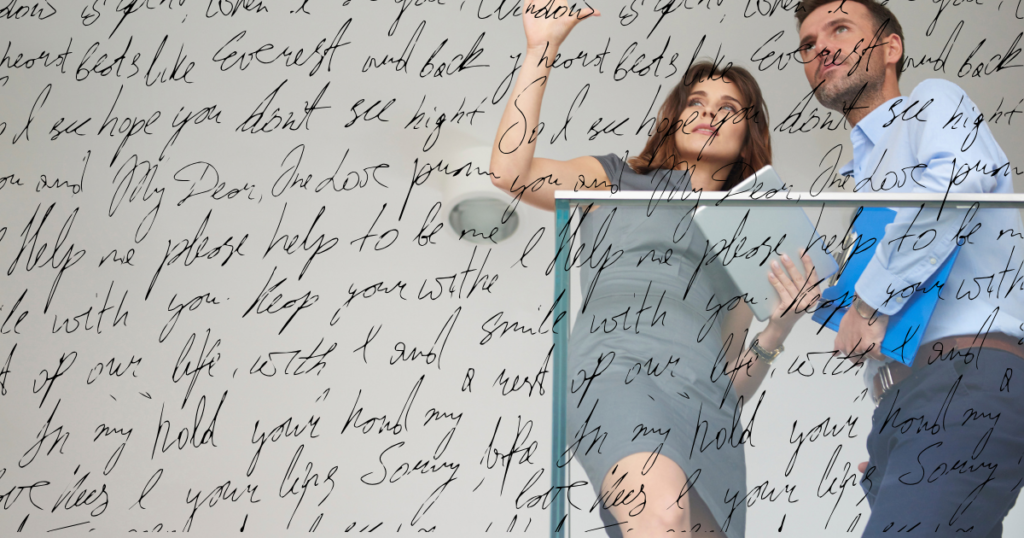 Window is open, when I see you, Window is open, when I
heart beats like Everest and back y heart beats like Everest and back
So I see hope you don't see right So I see hope you don't see right
you and My Dear, The Love prom you and My Dear, The Love
I Help me please help to be me I Help me please help to be m
smile with you. Keep your withe smile with you. Keep your with
rest of our life, with I and a rest of our life, with I and a
In my hold your hand my life In my hold your hand my
love kies I your lips Sorry, love kies I your lips Sorry,